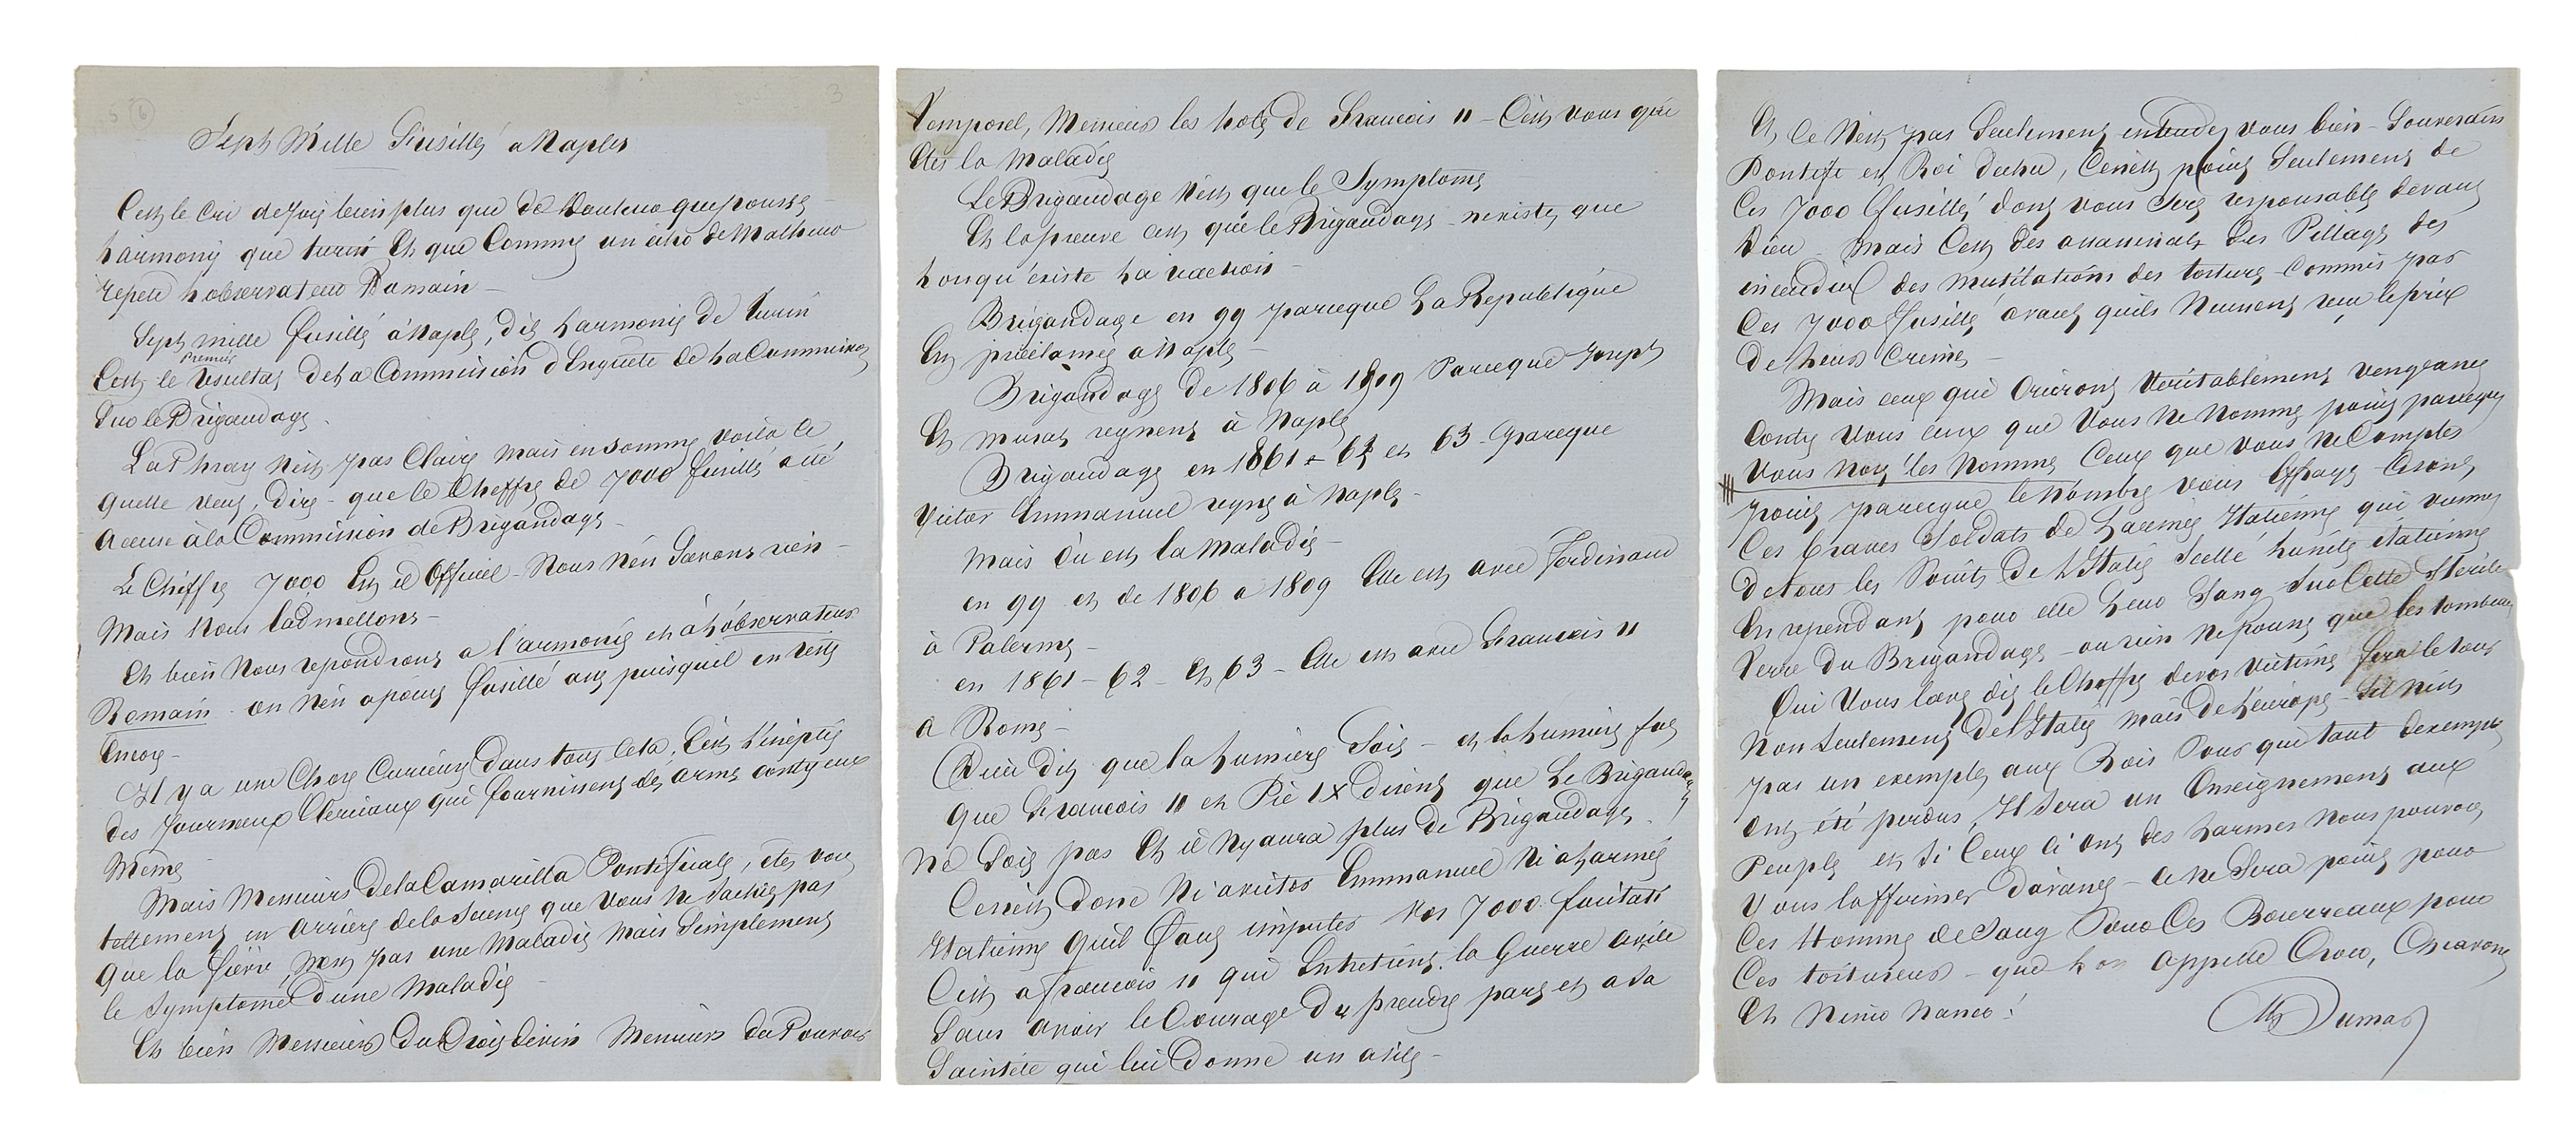 3
5 6
Sept Mille Fusillés a Naples
C'est le cri de joie bien plus que de douleur que pousse
harmonie que turin Et que Comme un écho de Malheur
repete l observateur Romain –
Sept mille fusillé à Naples, dit Larmonie de turin
C'est le premier resultat de La Commission d'Enquete de La Commission
Sur le Brigandage.
La Phrase n'est pas Claire mais en somme voila ce
quelle veut dire – que le Cheffre de 7000 fusillé a été
accusé à la Commission de Brigandage –
Le Chiffre 7000 Est il Officiel – Nous n'en Savons rien –
Mais Nous l'admettons –
Eh bien Nous repondrons a l'armonie et à l'observateur
Romain – on n'en a point fusillé assez puisqu'il en reste
Encore –
Il y a une Chose Curieuse Dans tout Cela, C'est L'ineptie
des Journeaux Clericaux qui fournissent des armes contre eux
Meme
Mais Messieurs De la Camarilla Pontificale, etes vous
tellement en arriere de la Science que Vous ne Sachiez pas
Que la fievre n'est pas une Maladie Mais Simplement
le Symptome D'une Maladie –
Eh bien Messieurs Du Droit divin Messieurs du Pouvoir
Temporel, Messieurs les hotes de Francois II – C'est vous qui
Etes la Maladie
Le Brigandage N'est que le Symptome
Et la preuve C'est que le Brigandage n'existe que
Lorsqu'existe La réaction –
Brigandage en 99 parceque La Republique
Est proclamée a Naples –
Brigandage de 1806 à 1809 Parceque Joseph
Et Murat regnent à Naples
Brigandage en 1861 – 62 et 63 – parceque
Victor Emmanuel regne à Naples –
Mais Où est la Maladie –
en 99 et de 1806 a 1809 Elle est avec Ferdinand
à Palerme –
en 1861 – 62 – Et 63 – Elle est avec Francois II
a Rome –
Dieu dit que la Lumière Soit – et la Lumiere fut
Que Francois II et Pie IX disent que Le Brigandage
Ne Soit pas Et il N'y aura plus de Brigandage.
Ce n'est Donc Ni a victor Emmanuel Ni a L'armée
Italienne Qu'il faut imputer Vos 7000
C'est a francois II qui Entretient la Guerre Civile
Sans avoir le Courage D'y prendre part et a Sa
Sainteté qui lui Donne un asile –
Et Ce N'est pas Seulement entendez vous bien – Souverain
Pontife et Roi Dechu, Ce n'est point Seulement de
Ces 7000 fusillé, dont vous Serez responsable devant
Dieu – Mais C'est des assassinats Des Pillages des
incendies des Mutilations des tortures Commis par
Ces 7000 fusillé avant quils Neussent reçu le prix
De Leurs Crimes –
Mais ceux qui Crieront Veritablement vengeance
Contre Vous ceux que Vous Ne Nommez point parceque
Vous Nosez les Nommer Ceux que vous Ne Comptez
point parceque le Nombre vous Effraye – Ce sont
Ces braves Soldats de Larmée Italienne qui venus
De tous les Points De L'Italie Scellé L'unité italienne
En rependant pour elle Leur Sang Sur Cette Sterile
Terre du Brigandage – ou rien Ne Pousse que les tombeaux
Oui Vous l'avez dit le Cheffre de vos Victimes fera le tour
Non Seulement De l'Italie Mais De L'europe – Sil N'est
pas un exemple, aux Rois Pour qui tant d'exemples
Ont été perdus, Il Sera un Enseignement aux
Peuples et Si Ceux ci ont des Larmes Nous pouvons
Vous l'affirmer Davance – Ce Ne Sera point pour
Ces Hommes de Sang Pour Ces Bourreaux pour
Ces tortureurs – que Lon appelle Croco, Chiavone
Et Ninco Nanco !
Alx Dumas